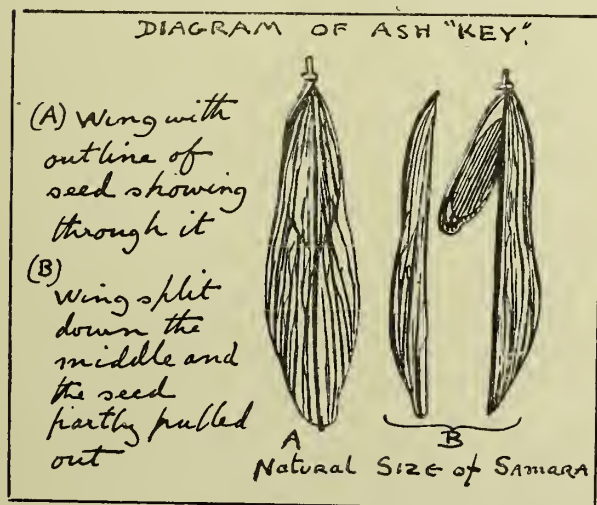 DIAGRAM OF ASH "KEY".
(A) Wing with
outline of
seed showing
through it
(B)
Wing split
down the
middle and
the seed
partly pulled
out
A
B
Natural Size of Samara